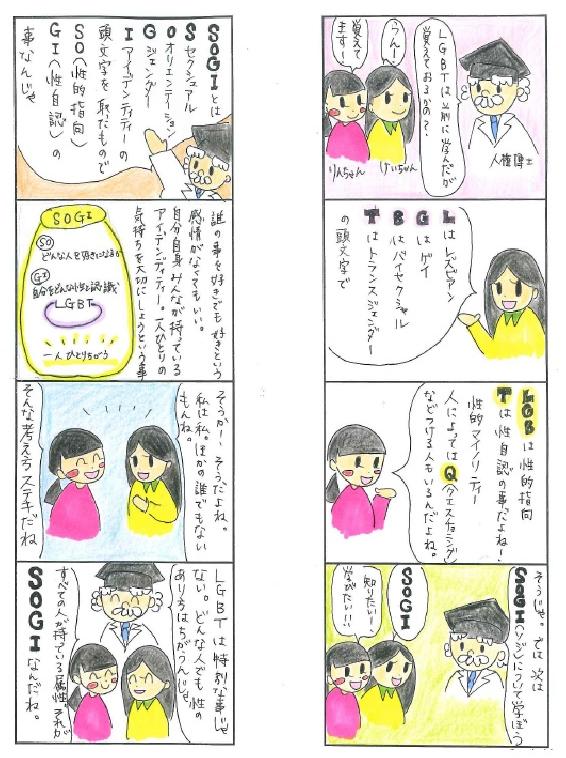 LGBTは前に学んだが
覚えておるかの?
うん!
覚えて
ます!
人権博士
けいちゃん
りんちゃん
Lはレズビアン
Gはゲイ
Bはバイセクシャル
Tはトランスジェンダー
の頭文字で
LGBは性的指向
Tは性自認の事だよね!
性的マイノリティー
人によってはQ(クエスチョニング)
などつける人もいるんだよね。
そうじゃ。では次は
SOGI(ソジ)について学ぼう
SOGI
知りたい!
学びたい!!
SOGIとは
Sセクシュアル
Oオリエンテーション
Gジェンダー
Iアイデンティティーの
頭文字を取たもので
SO(性的指向)
GI(性自認)の
事なんじゃ
誰の事を好きでも好きという
感情がなくてもいい。
自分自身みんなが持っている
アイデンティティー。一人ひとりの
気持ちを大切にしようという事
SOGI
SO
どんな人を好きになるか
GI
自分をどんな性と認識
LGBT
一人ひとりちがう
そうかー そうだよね。
私は私。ほかの誰でもない
もんね。
そんな考え方ステキだね
LGBTは特別な事じゃ
ない。どんな人でも性の
あり方はちがうんじゃ
すべての人が持ている属性。それが
SOGIなんだね。